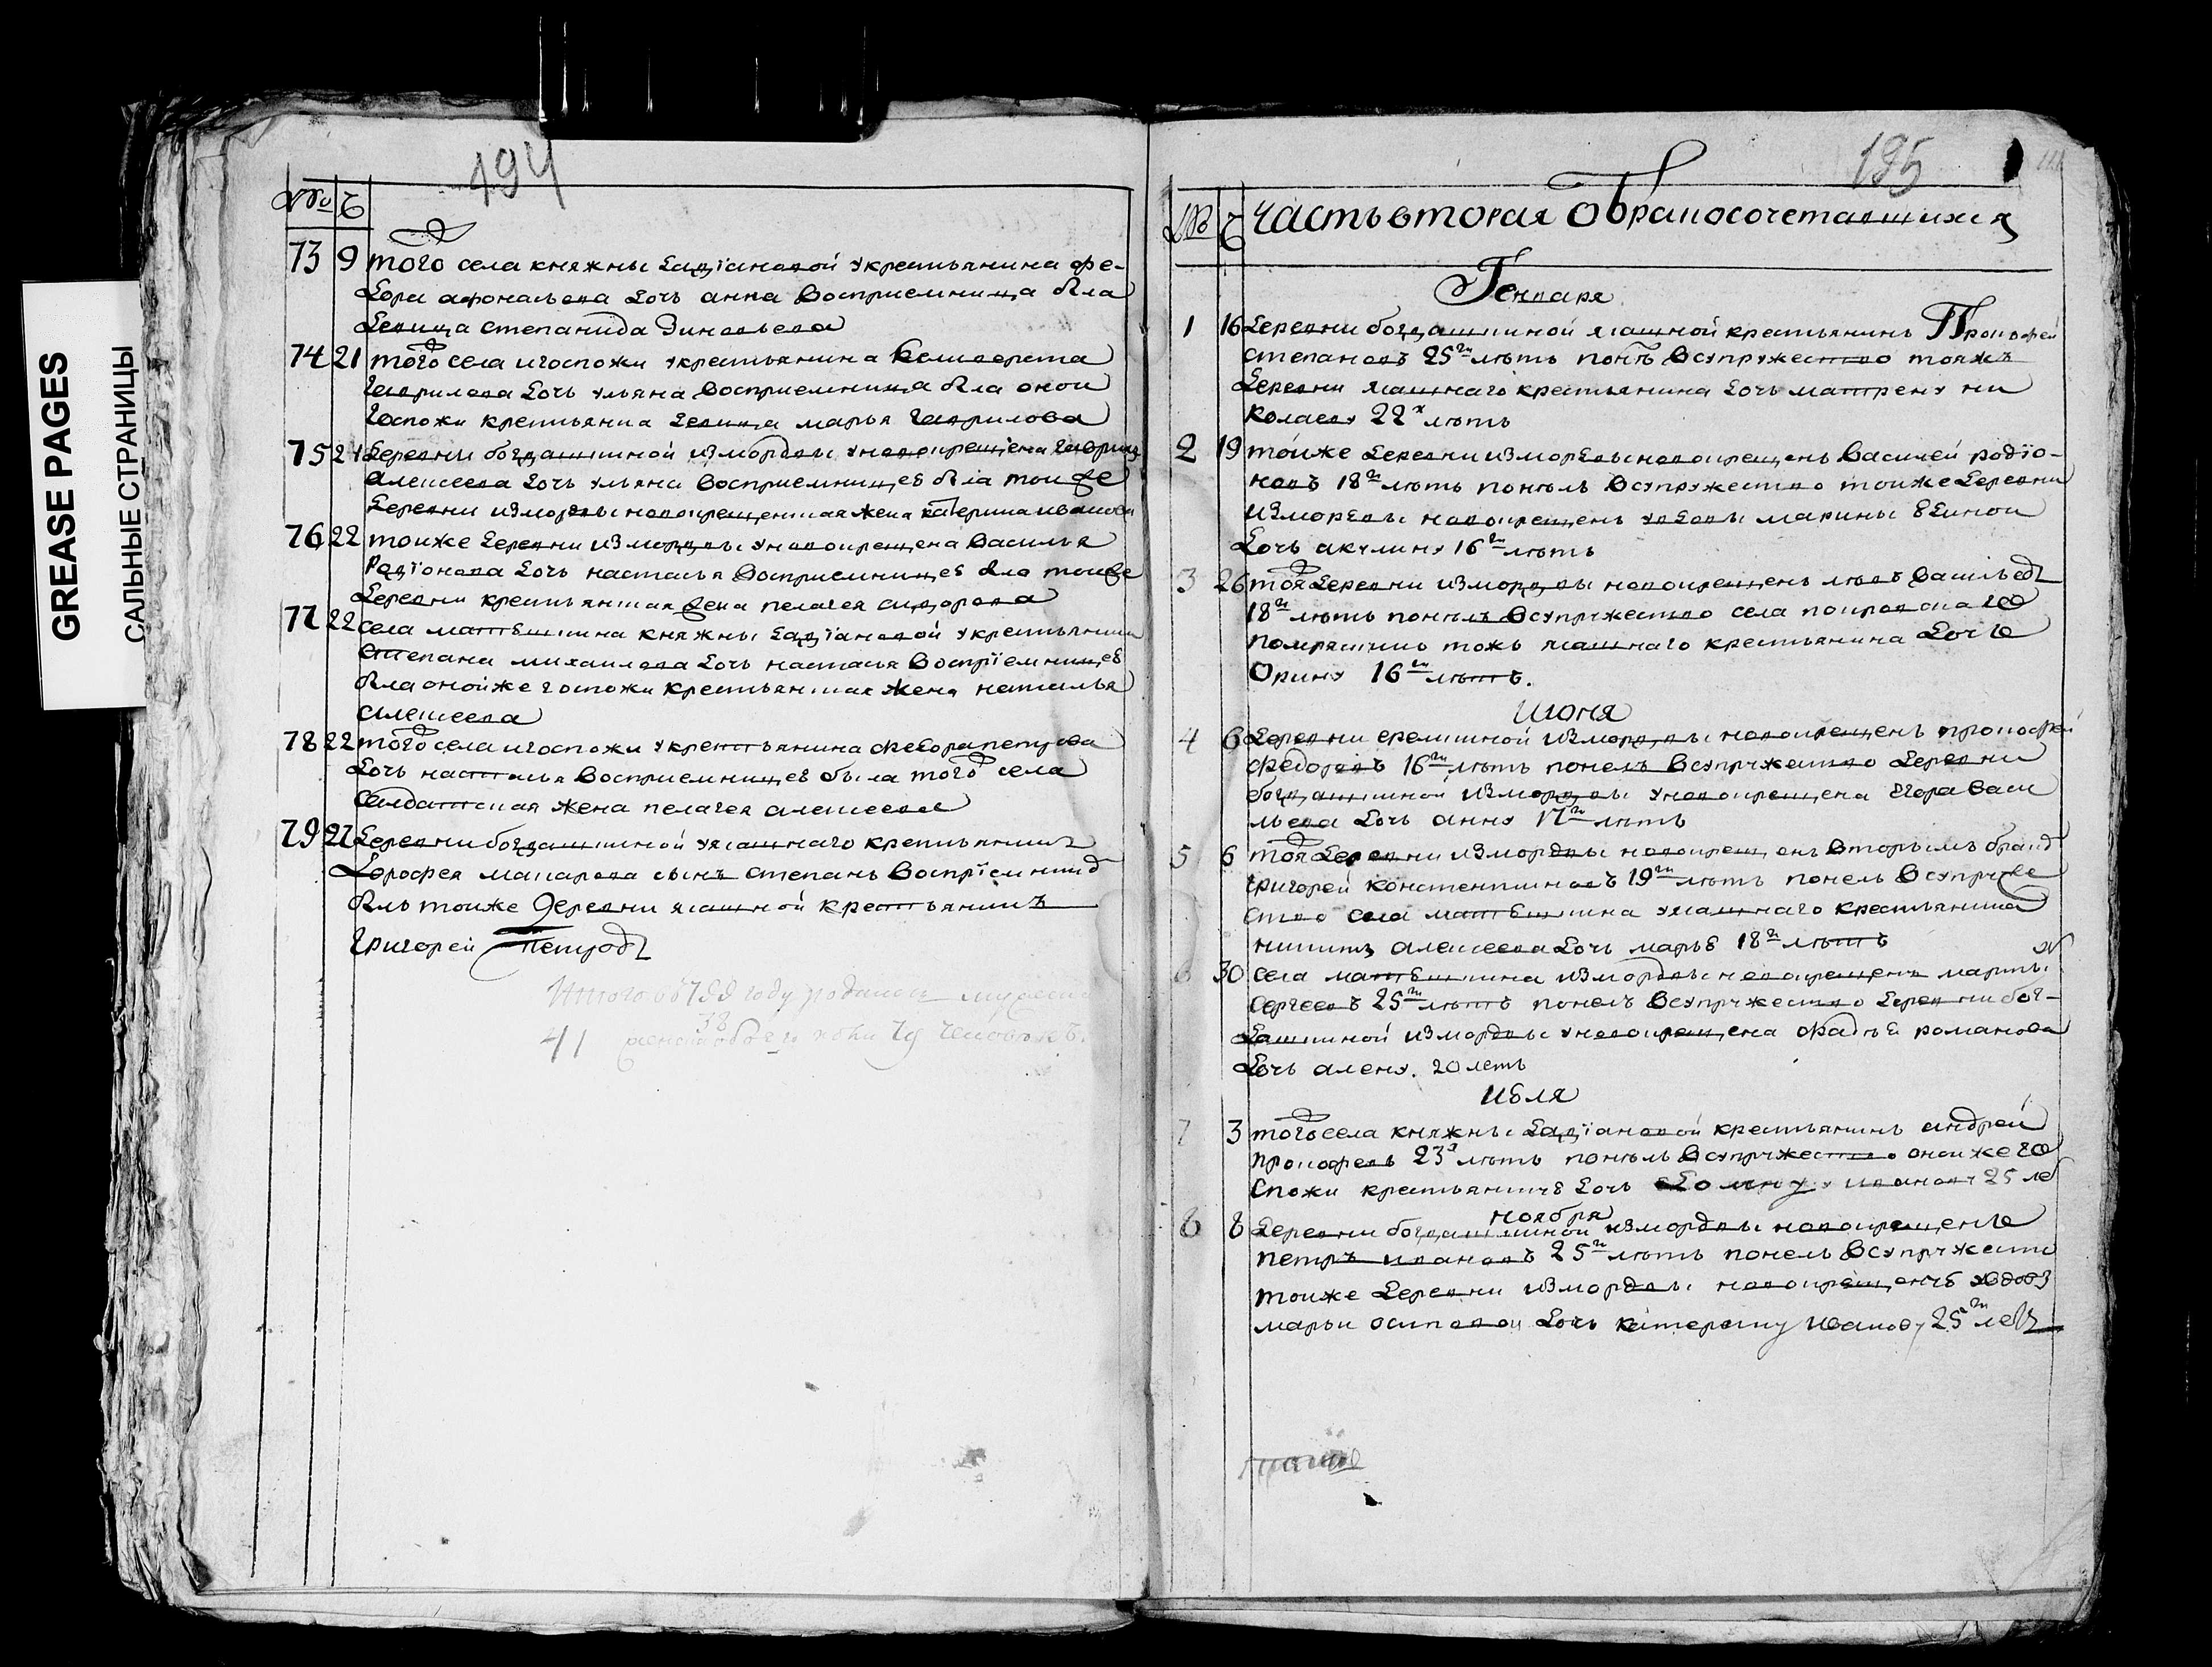 GREASE PAGES
САЛЬНЫЕ СТРАНИЦЫ
194
№ Ч
73 9 того села княжны Кадїановой у крестьянина Фе-
дора Афонасьева дочь Анна восприемница была
девица Степанида Зиновьева
74 21 того села и госпожи у крестьянина Селиверста
Гаврилова дочь Ульяна восприемница бла оной
госпожи крестьянка девица Марья Гаврилова
75 21 деревни Богдашкиной из мордвы у новокрещена Гаврила
Алексеева дочь Ульяна восприемницеѣ бла тои же
деревни из мордвы новокрещенская жена Катерина Иванова
76 22 тоиже деревни из мордвы у новокрещена Василья
Родїонова дочь Настасья восприемницеѣ бла тоиже
деревни крестьянская жена Пелагея Сидорова
77 22 села Матвшкина княжны Кадїановой у крестьянина
Степана Михаилова дочь Настасья воспрїемницеѣ
бла онойже госпожи крестьянская жена Наталья
Алексеева
78 22 того села и госпожи у крестьянина Федора Петрова
дочь Настасья восприемницеѣ была того села
салдатская жена Пелагея Алексеева
79 27 деревни Богдашкиной у ясашнаго крестьянина
Дорофея Макарова сынъ Степанъ воспрїемник
блъ тоиже деревни ясашной крестьянинъ
Григорей Петровъ
Итого въ году родилось мужеска
41 женска 38 обоего человекъ
195
№ Ч Часть вторая О бракосочетавшихся
Генваря
1 16 деревни Богдашкиной ясашной крестьянинъ Прокофей
Степановъ 25 лѣтъ понѧлъ всупружество тояжъ
деревни ясашнаго крестьянина дочь Матрену Ни
колаеву 22х лѣтъ
2 19 тоиже деревни из мордвы новокрещенъ Василей Родїо-
новъ 18 лѣтъ понялъ всупружество тоиже деревни
из мордвы новокрещенъ удовы Марины единой
дочь Акулину 16 лѣтъ
3 26 тоя деревни из мордвы новокрещенъ Левъ Васильевъ
18 лѣтъ понялъ всупружество села Покровскаго
тожъ ясашнаго крестьянина дочь
Орину 16 лѣтъ.
Июня
4 6 деревни Еремкиной из мордвы новокрещенъ Прокофей
Федоровъ 16 лѣтъ понелъ всупружество деревни
Богдашкиной из мордвы у новокрещена Егора Васи
льева дочь Анну 17 лѣтъ
5 6 тоя деревни из мордвы новокрещенъ вторымъ браком
Григорей Констентиновъ 19 лѣтъ понелъ всупруже
ство села Матвшкина у ясашнаго крестьянина
Никиты Алексеева дочь Марьѣ 18 лѣтъ
6 30 села Матвшкина из мордвы новокрещенъ Мартын
Сергеевъ 25 лѣтъ понелъ всупружество деревни Бог-
дашкиной из мордвы у новокрещена Фадѣй Романова
дочь Алену. 20 летъ
Июля
7 3 того села княжны Кадїановой крестьянинъ Андрей
Прокофевъ 23 лѣтъ понялъ всупружество онойже го
спожи крестьянинѣ дочь Домну Иванову 25 ле
ноября
8 8 деревни Богдашкиной из мордвы новокрещенъ
Петръ Ивановъ 25 лѣтъ понелъ всупружество
тоиже деревни из мордвы новокрещенѣ удовы
Марьи Осиповой дочь Катерину Иванову 25 летъ